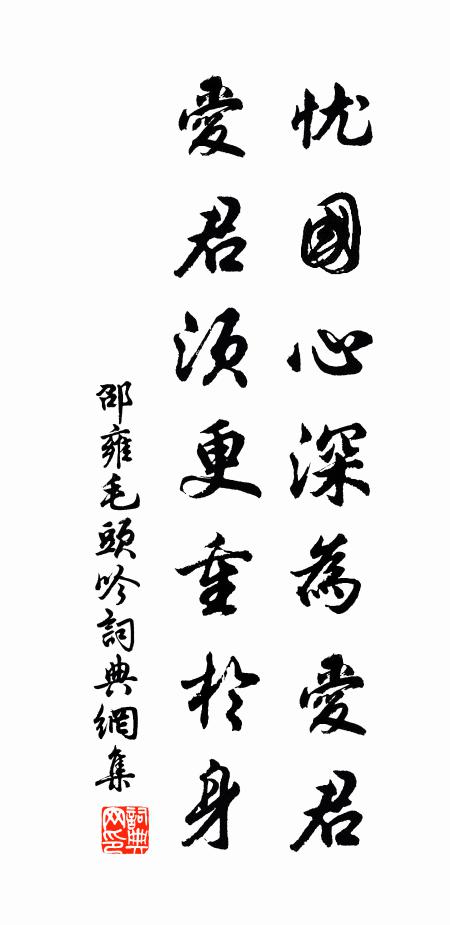 忧國心深為愛君
愛君須更重於身
邵雍毛頭吟詞典網集
詞典
网印